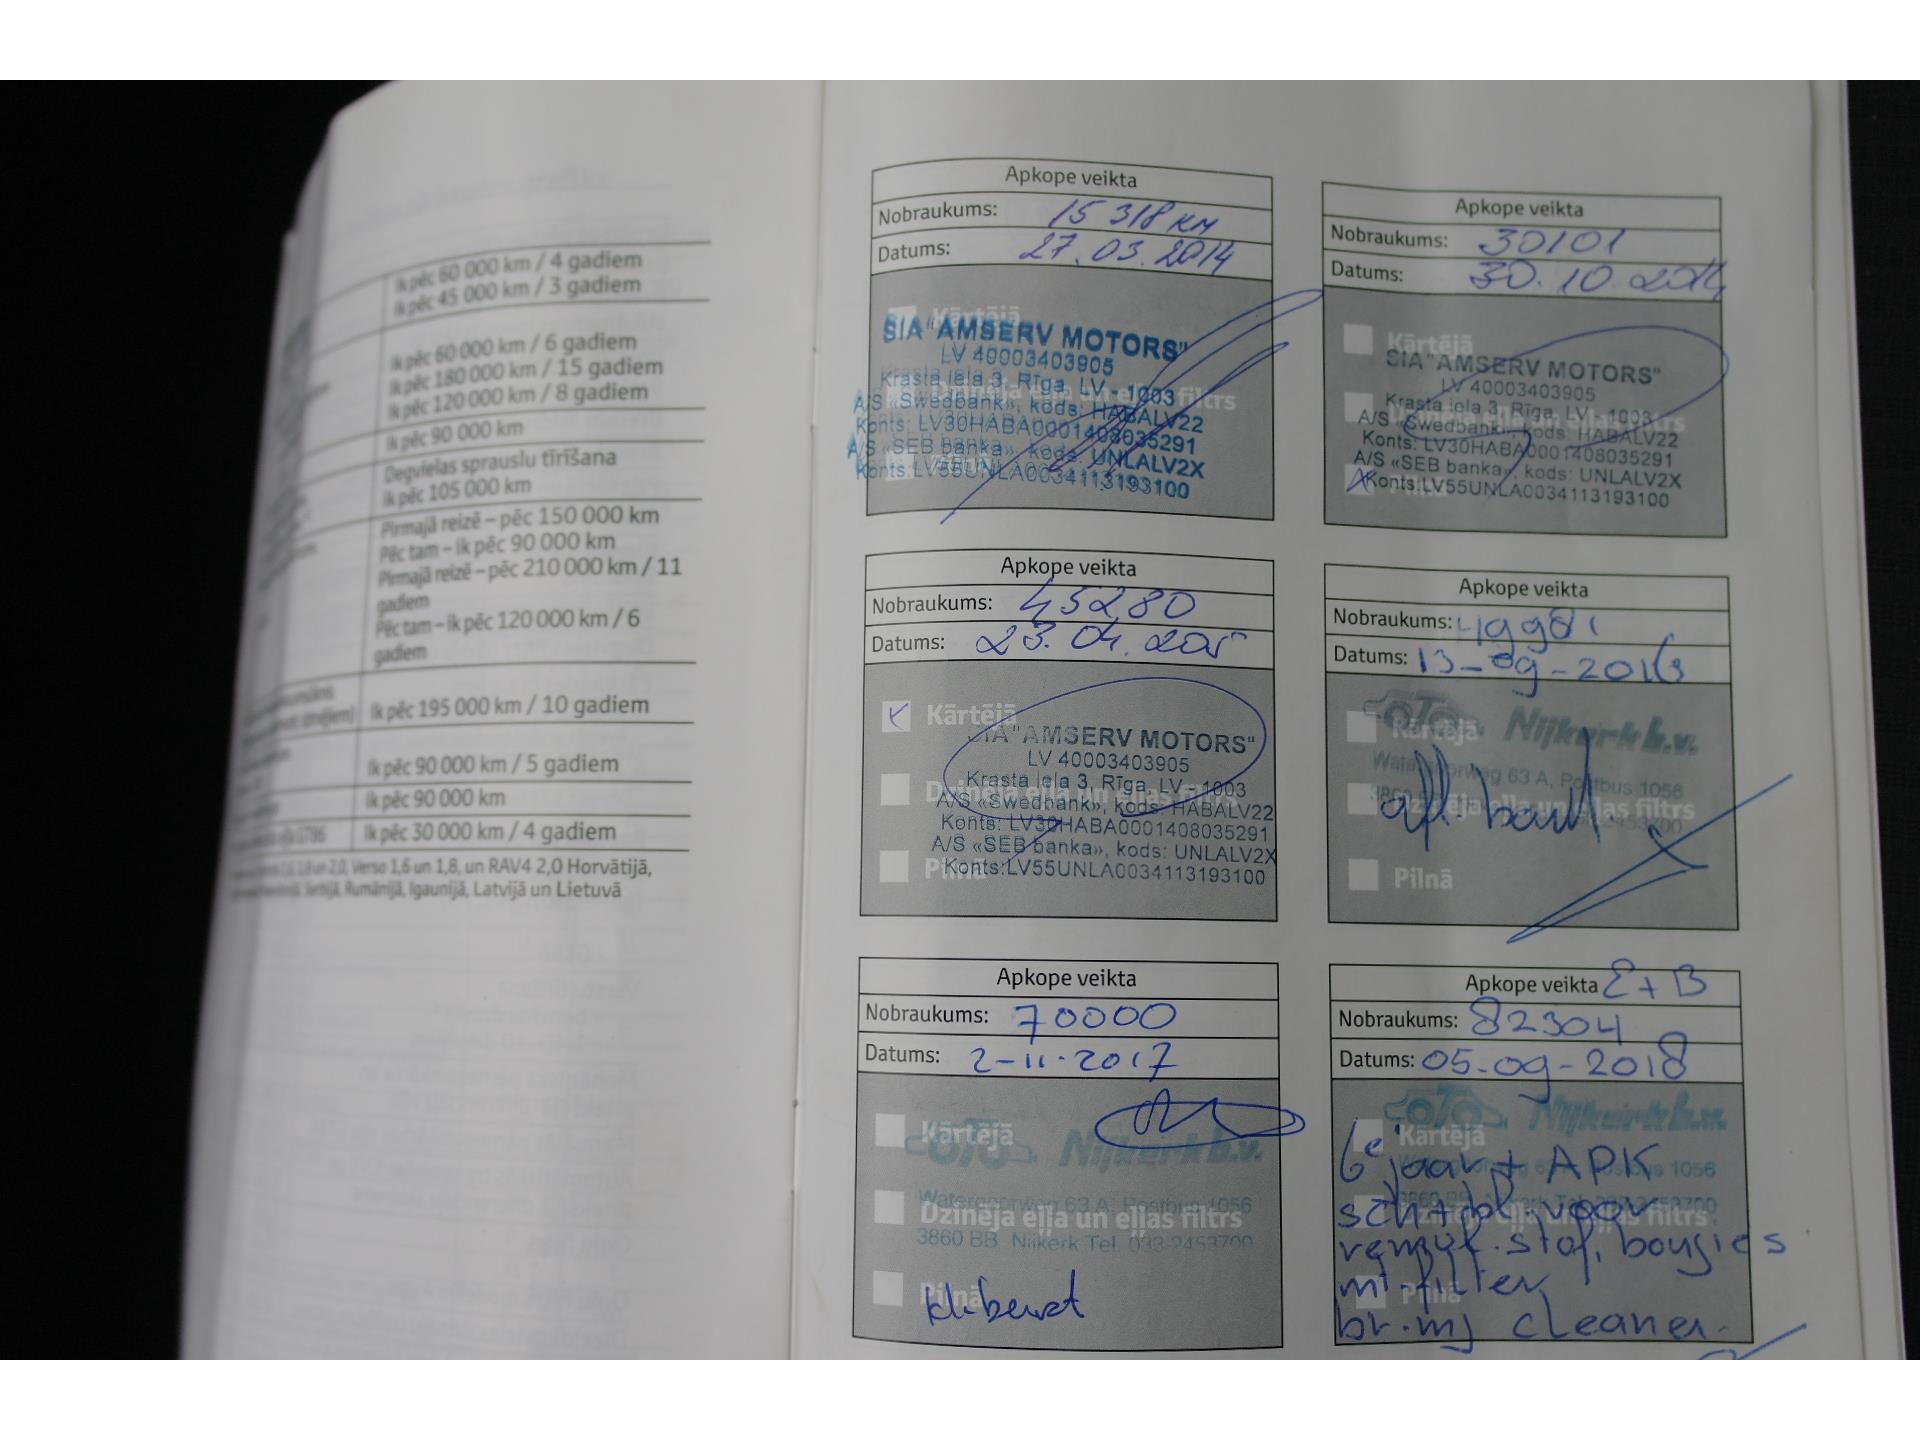 Ik pēc 60 000 km / 4 gadiem
Ik pēc 45 000 km / 3 gadiem
Ik pēc 60 000 km / 6 gadiem
Ik pēc 180 000 km / 15 gadiem
Ik pēc 120 000 km / 8 gadiem
Ik pēc 90 000 km
Degvielas sprauslu tīrīšana
Ik pēc 105 000 km
Pirmajā reizē – pēc 150 000 km
Pēc tam – ik pēc 90 000 km
Pirmajā reizē – pēc 210 000 km / 11
gadiem
Pēc tam – ik pēc 120 000 km / 6
gadiem
Ik pēc 195 000 km / 10 gadiem
Ik pēc 90 000 km / 5 gadiem
Ik pēc 90 000 km
GT86 Ik pēc 30 000 km / 4 gadiem
1,8 un 2,0, Verso 1,6 un 1,8, un RAV4 2,0 Horvātijā,
Serbijā, Rumānijā, Igaunijā, Latvijā un Lietuvā
Apkope veikta
Nobraukums: 15 318 км
Datums: 27.03.2014
Kārtējā
SIA "AMSERV MOTORS"
LV 40003403905
Krasta iela 3, Rīga, LV - 1003
Dzinēja eļļa un eļļas filtrs
A/S «Swedbank», kods: HABALV22
Konts: LV30HABA0001408035291
A/S «SEB banka», kods: UNLALV2X
Konts:LV55UNLA0034113193100
Apkope veikta
Nobraukums: 30101
Datums: 30.10.2014
Kārtējā
SIA "AMSERV MOTORS"
LV 40003403905
Krasta iela 3, Rīga, LV - 1003
Dzinēja eļļa un eļļas filtrs
A/S «Swedbank», kods: HABALV22
Konts: LV30HABA0001408035291
A/S «SEB banka», kods: UNLALV2X
Pilnā
Konts:LV55UNLA0034113193100
Apkope veikta
Nobraukums: 45280
Datums: 23.04.2015
Kārtējā
SIA "AMSERV MOTORS"
LV 40003403905
Krasta iela 3, Rīga, LV - 1003
Dzinēja eļļa un eļļas filtrs
A/S «Swedbank», kods: HABALV22
Konts: LV30HABA0001408035291
A/S «SEB banka», kods: UNLALV2X
Pilnā
Konts:LV55UNLA0034113193100
Apkope veikta
Nobraukums: 49981
Datums: 13-09-2016
Nijkerk b.v.
Kārtējā
Watergoorweg 63 A, Postbus 1056
Dzinēja eļļa un eļļas filtrs
Pilnā
Apkope veikta
Nobraukums: 70000
Datums: 2-11-2017
Kārtējā
Nijkerk b.v.
Watergoorweg 63 A, Postbus 1056
Dzinēja eļļa un eļļas filtrs
3860 BB Nijkerk Tel. 033-2453700
Pilnā
Apkope veikta E+B
Nobraukums: 82304
Datums: 05-09-2018
Nijkerk b.v.
Kārtējā
6e jaar + APK
Watergoorweg 63 A, Postbus 1056
3860 BB Nijkerk Tel. 033-2453700
voor
Dzinēja eļļa un eļļas filtrs
remvl.stof, bougies
Pilnā
filter
cleaner.